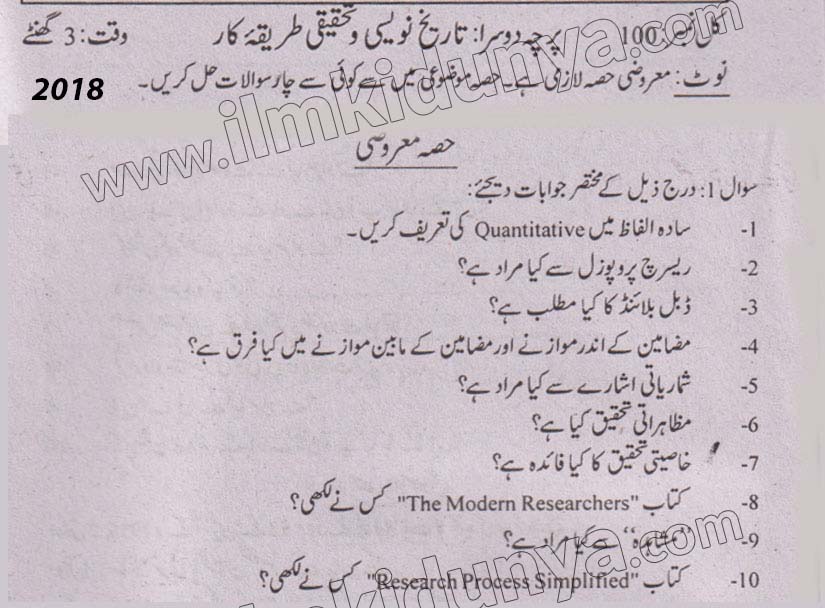 کل نمبر: 100 پرچہ دوسرا: تاریخ نویسی و تحقیقی طریقۂ کار وقت: 3 گھنٹے
نوٹ: معروضی حصہ لازمی ہے۔ حصہ موضوعی میں سے کوئی سے چار سوالات حل کریں۔
2018
www.ilmkidunya.com
حصہ معروضی
سوال 1: درج ذیل کے مختصر جوابات دیجئے:
1- سادہ الفاظ میں Quantitative کی تعریف کریں۔
2- ریسرچ پروپوزل سے کیا مراد ہے؟
3- ڈبل بلائنڈ کا کیا مطلب ہے؟
4- مضامین کے اندر موازنے اور مضامین کے مابین موازنے میں کیا فرق ہے؟
5- شماریاتی اشارے سے کیا مراد ہے؟
6- مظاہراتی تحقیق کیا ہے؟
7- خاصیتی تحقیق کا کیا فائدہ ہے؟
8- کتاب "The Modern Researchers" کس نے لکھی؟
9- ”مشاہدہ“ سے کیا مراد ہے؟
10- کتاب "Research Process Simplified" کس نے لکھی؟
ilmkidunya.com